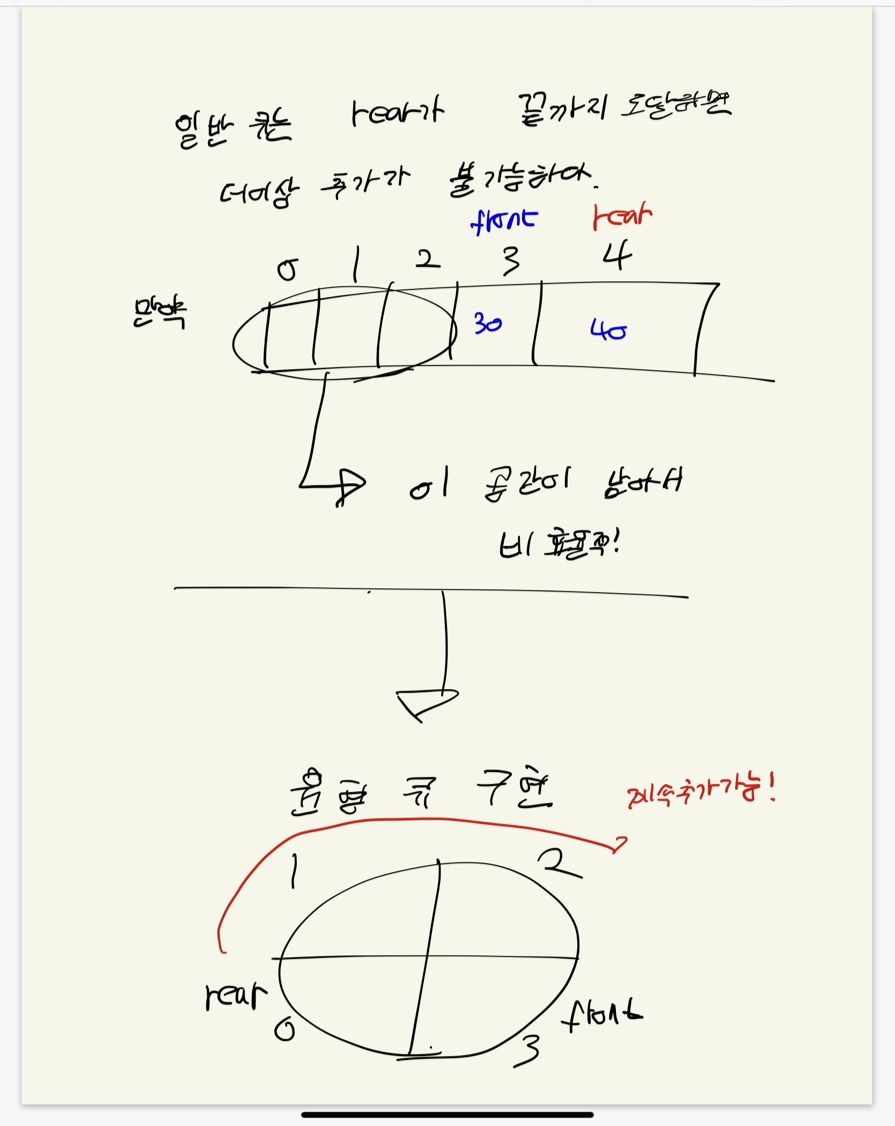 일반 큐는 rear가 끝까지 도달하면
더이상 추가가 불가능하다.
front rear
0 1 2 3 4
만약
30 40
이 공간이 남아서
비효율적!
원형 큐 구현
계속추가가능!
1 2
rear front
0 3